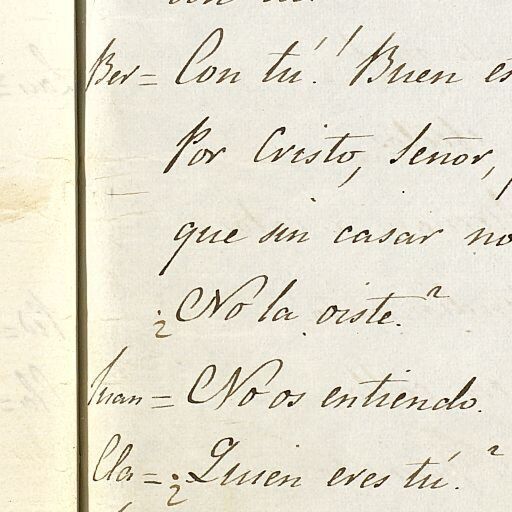 Ber= Con tú! Buen es
Por Cristo, Señor,
que sin casar no
¿No la oiste?
Juan= No os entiendo.
Cla= ¿Quien eres tú?